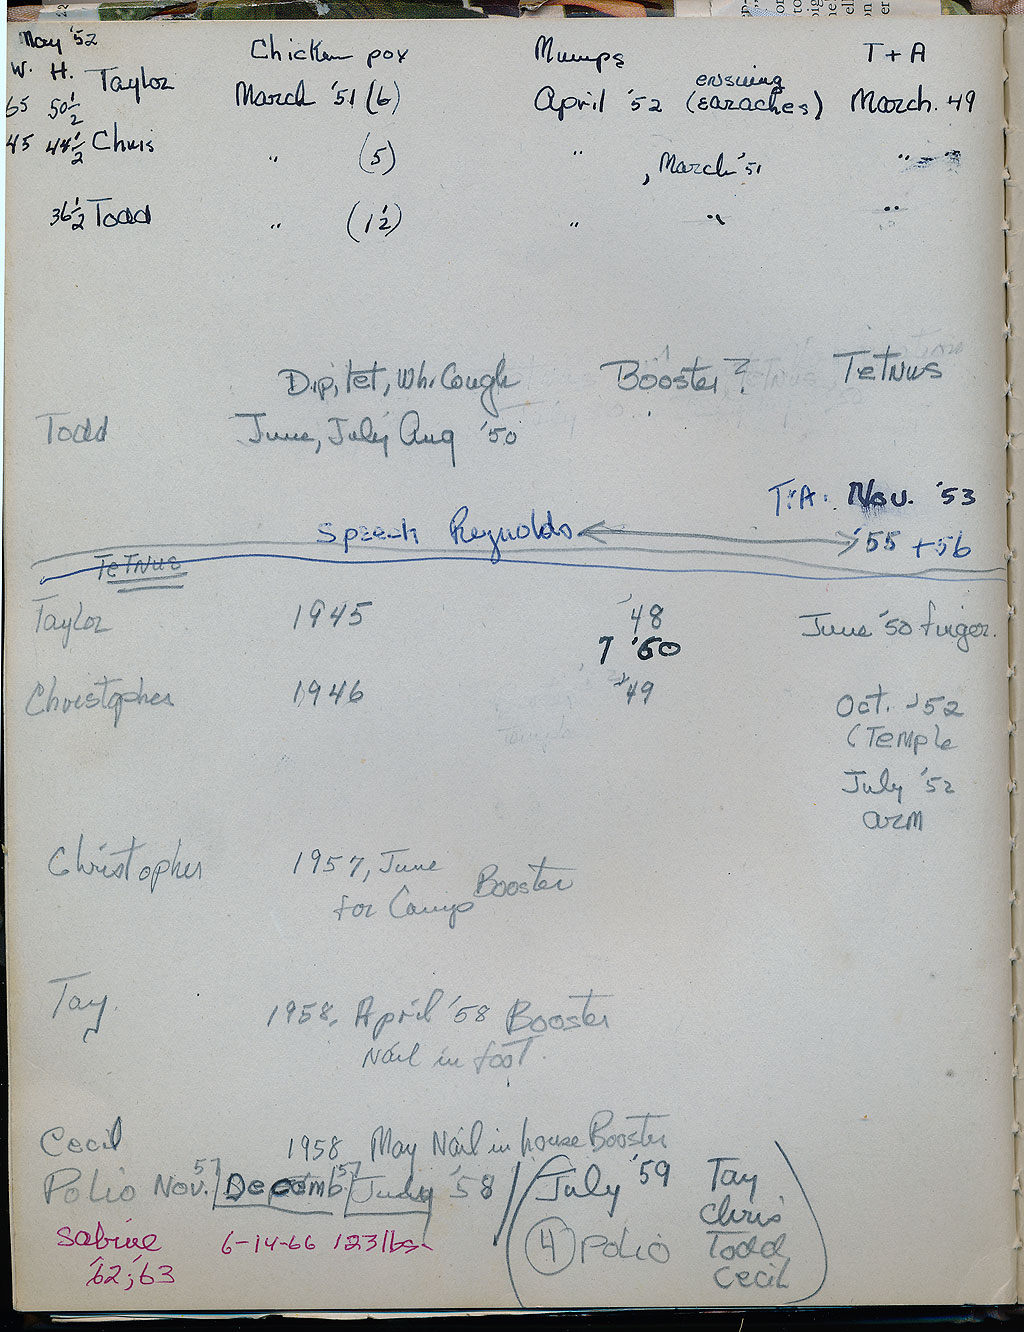 May '52 Chicken pox Mumps T + A
W. H. Taylor ensuing
65 50 1/2 March '51 (6) April '52 (earaches) March. 49
45 44 1/2 Chris " (5) " , March '51 "
36 1/2 Todd " (1 1/2) " " "
Dip, tet, Wh. Cough Booster? Tetnus
Todd June, July Aug '50
T+A: Nov. '53
Speech Reynolds '55 + 56
Tetnus
Taylor 1945 '48 June '50 finger.
T '60
Christopher 1946 '49 Oct. '52
(Temple
July '52
arm
Christopher 1957, June
for Camp Booster
Tay. 1958. April '58 Booster
Nail in foot.
Cecil 1958 May Nail in house Booster
Polio Nov. 57 Decemb. 57 '58 July '59 Tay
Chris
Sabine 6-14-66 123 lbs. 4 Polio Todd
'62, '63 Cecil